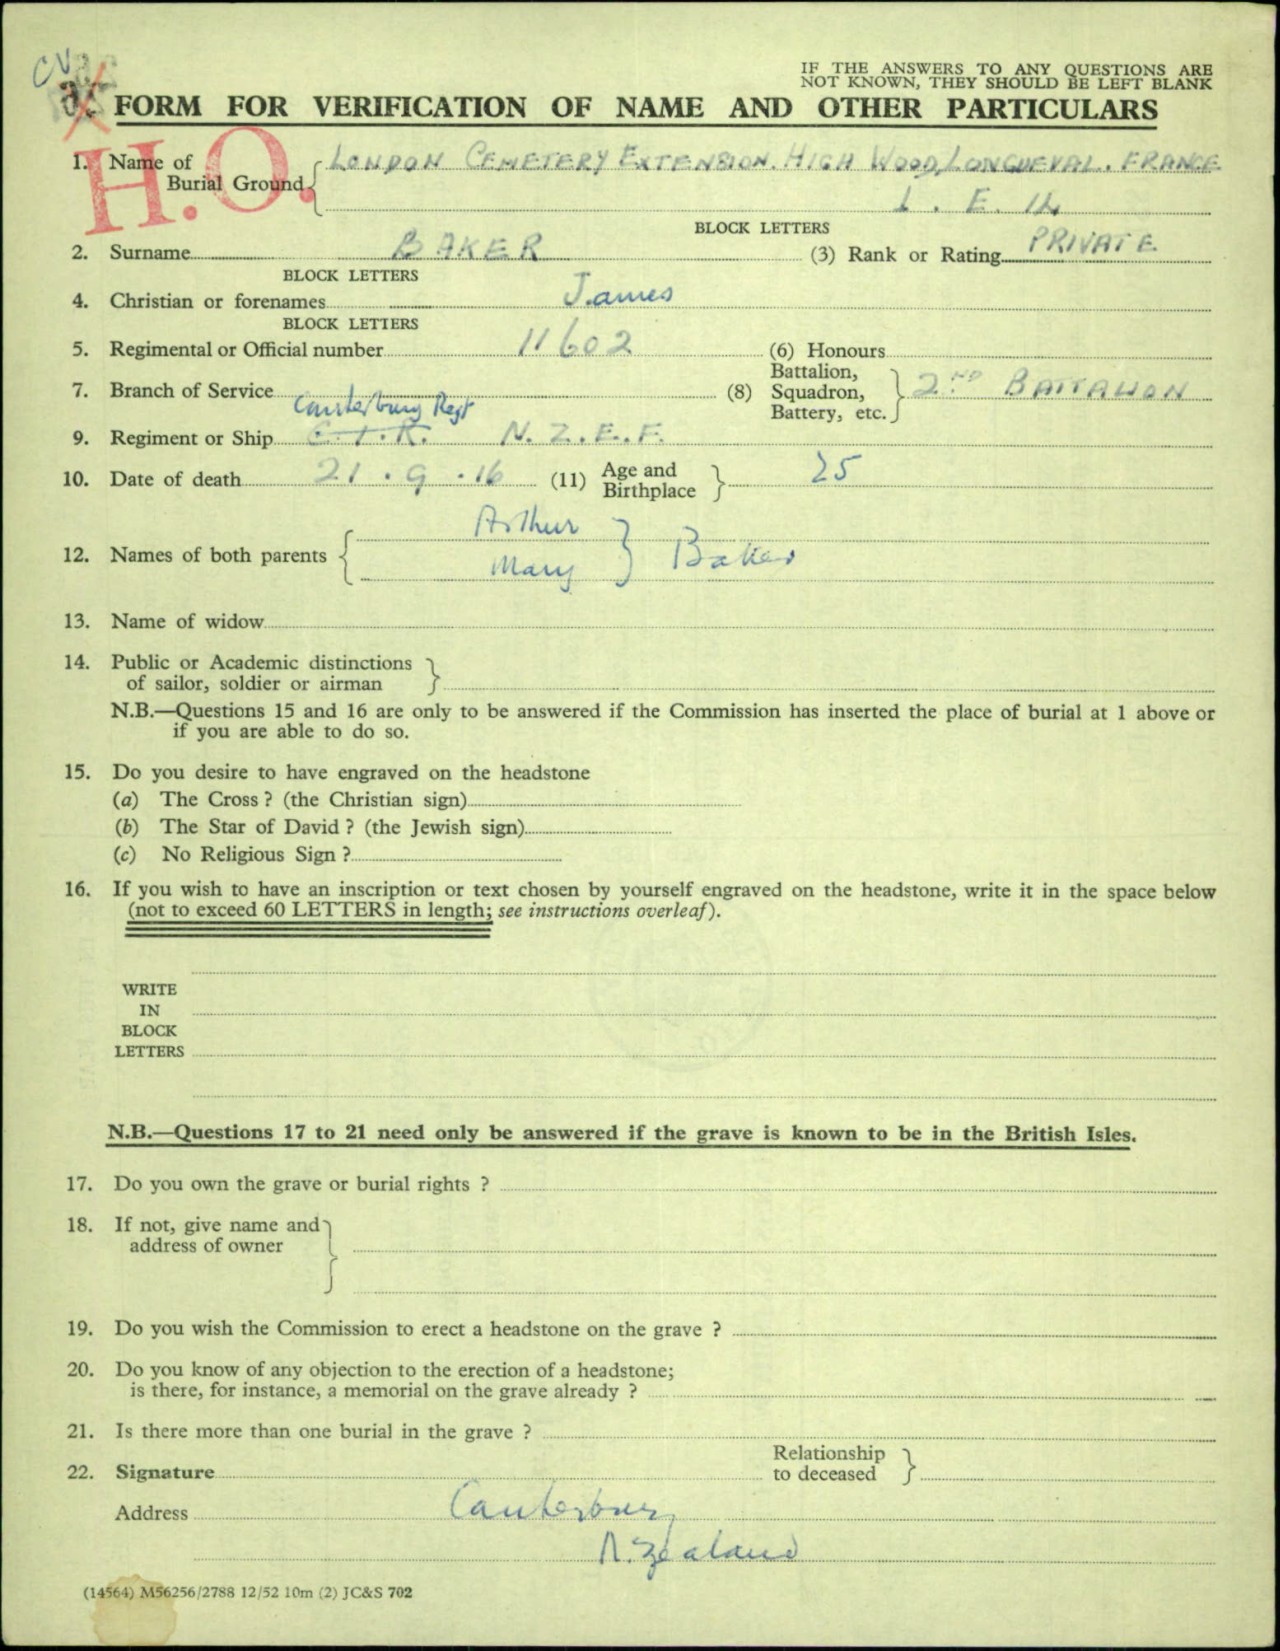 CV
IF THE ANSWERS TO ANY QUESTIONS ARE
NOT KNOWN, THEY SHOULD BE LEFT BLANK
FORM FOR VERIFICATION OF NAME AND OTHER PARTICULARS
H.O.
1. Name of Burial Ground { LONDON CEMETERY EXTENSION. HIGH WOOD, LONGUEVAL. FRANCE
1. E. 14
BLOCK LETTERS
2. Surname BAKER (3) Rank or Rating PRIVATE
BLOCK LETTERS
4. Christian or forenames James
BLOCK LETTERS
5. Regimental or Official number 11602 (6) Honours
7. Branch of Service (8) Battalion, Squadron, Battery, etc. } 2ND BATTALION
Canterbury Regt
9. Regiment or Ship C.I.R. N.Z.E.F.
10. Date of death 21.9.16 (11) Age and Birthplace } 25
12. Names of both parents { Arthur
Mary } Baker
13. Name of widow
14. Public or Academic distinctions
of sailor, soldier or airman }
N.B.—Questions 15 and 16 are only to be answered if the Commission has inserted the place of burial at 1 above or
if you are able to do so.
15. Do you desire to have engraved on the headstone
(a) The Cross? (the Christian sign)
(b) The Star of David? (the Jewish sign)
(c) No Religious Sign?
16. If you wish to have an inscription or text chosen by yourself engraved on the headstone, write it in the space below
(not to exceed 60 LETTERS in length; see instructions overleaf).
WRITE
IN
BLOCK
LETTERS
N.B.—Questions 17 to 21 need only be answered if the grave is known to be in the British Isles.
17. Do you own the grave or burial rights ?
18. If not, give name and
address of owner }
19. Do you wish the Commission to erect a headstone on the grave ?
20. Do you know of any objection to the erection of a headstone;
is there, for instance, a memorial on the grave already ?
21. Is there more than one burial in the grave ?
22. Signature Relationship to deceased }
Address Canterbury
N. Zealand
(14564) M56256/2788 12/52 10m (2) JC&S 702